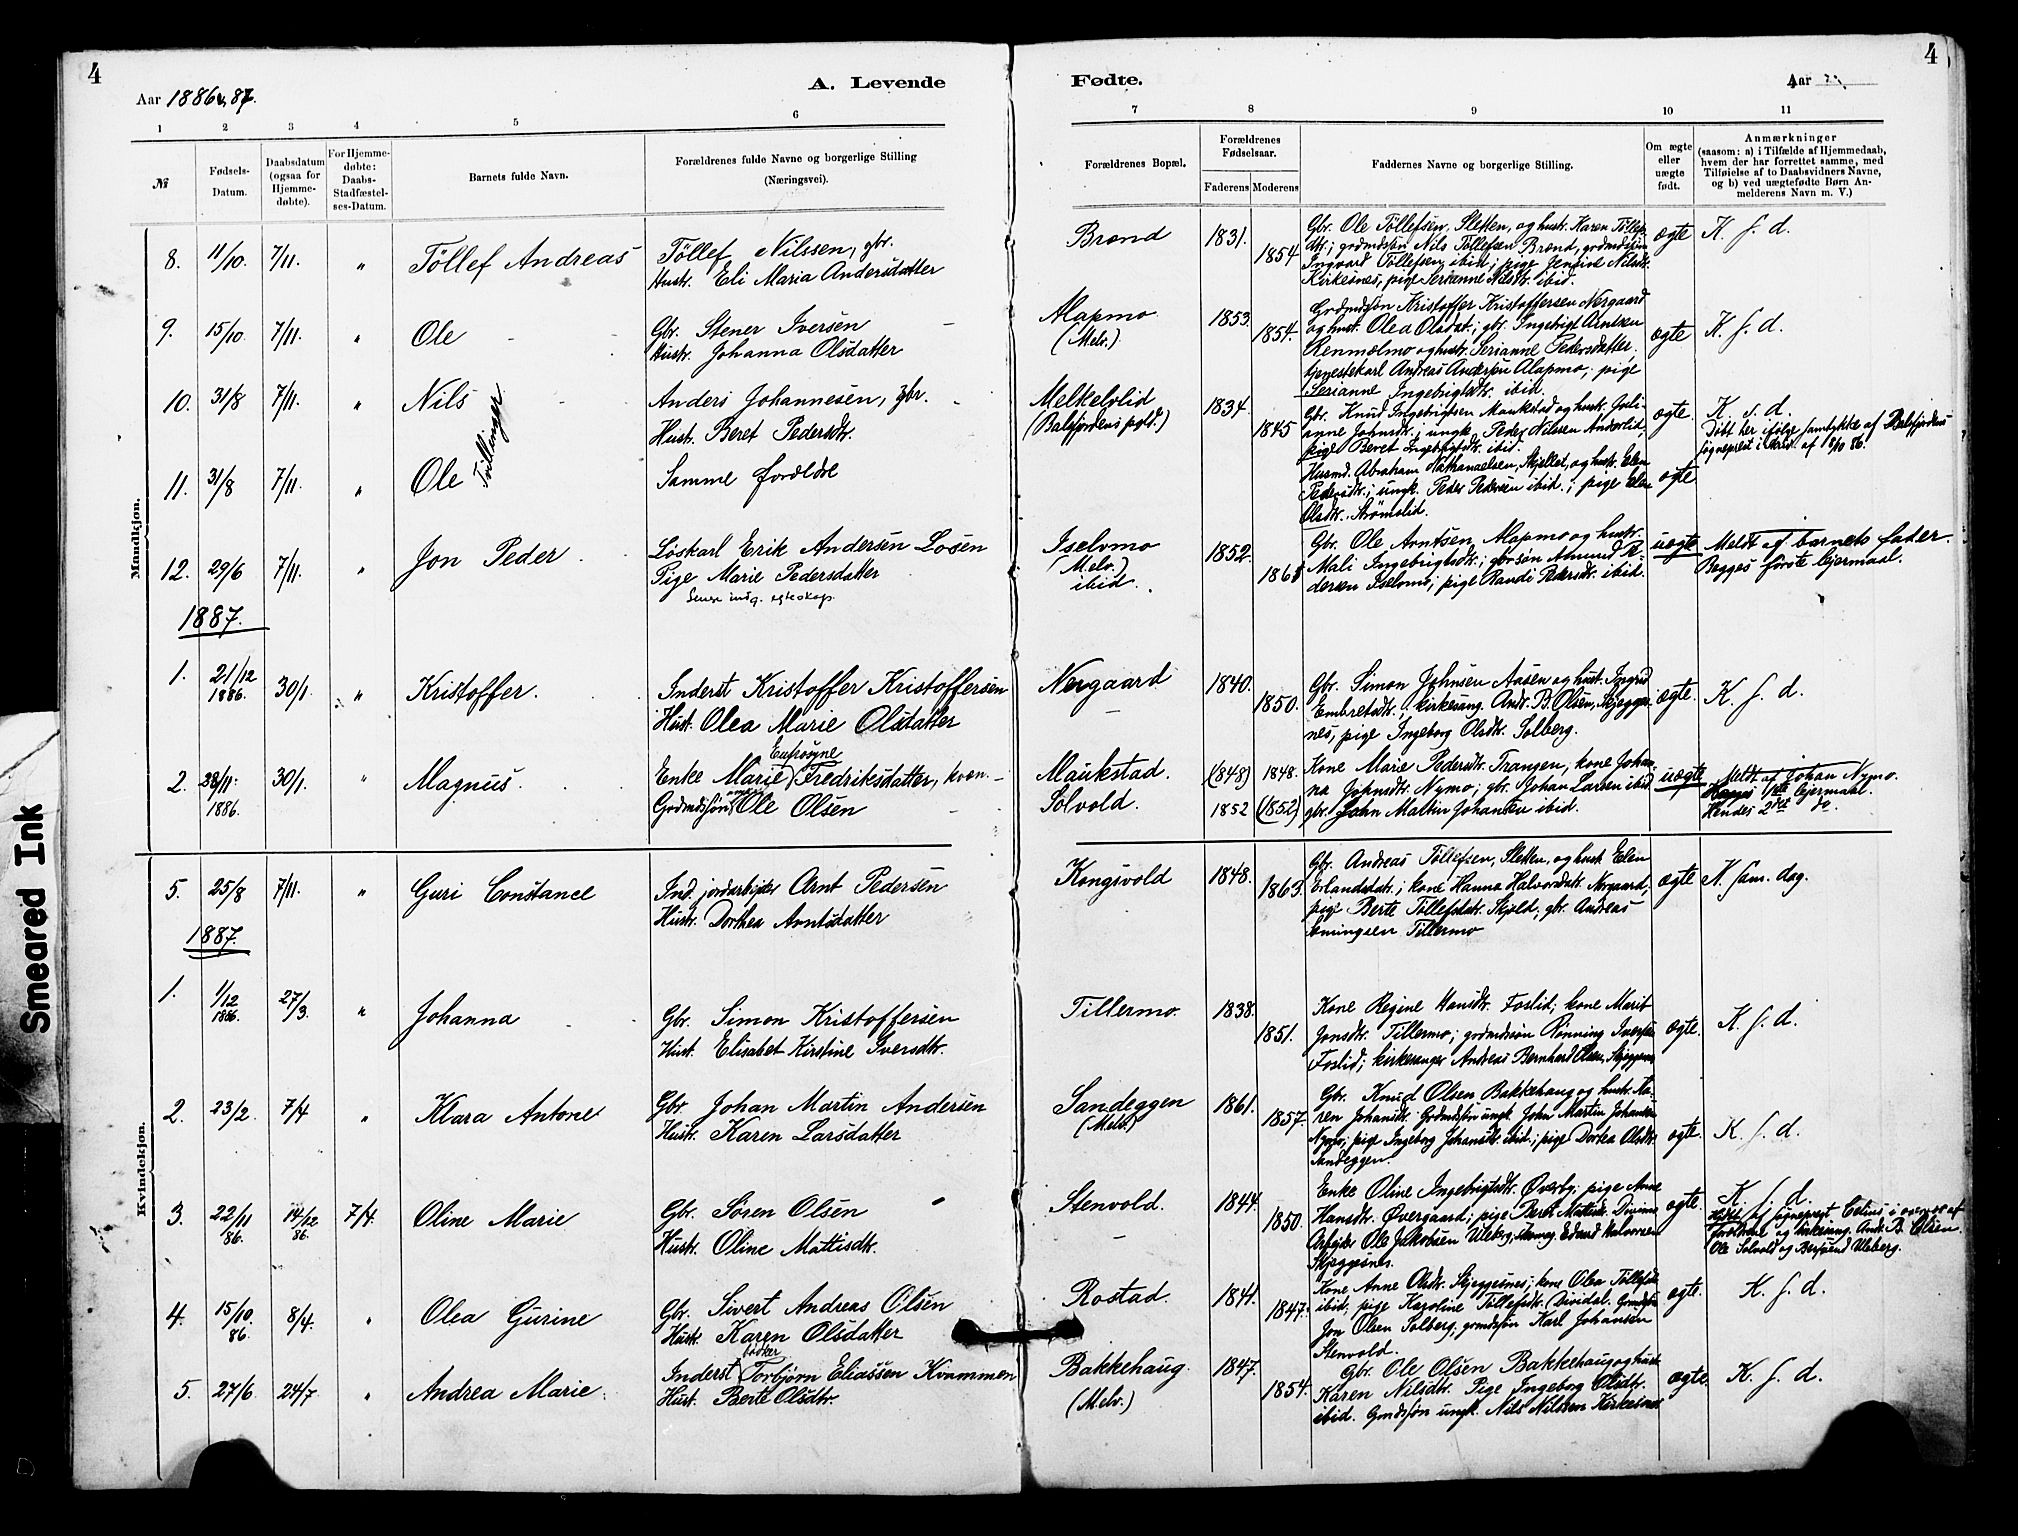 4
4
Aar 1886 & 87.
A. Levende
Fødte.
Aar
1 2 3 4 5 6 7 8 9 10 11
№
Fødsels-
Datum.
Daabsdatum
(ogsaa for
Hjemme-
døbte).
For Hjemme-
døbte:
Daabs-
Stadfæstel-
ses-Datum.
Barnets fulde Navn.
Forældrenes fulde Navne og borgerlige Stilling
(Næringsvei).
Forældrenes Bopæl.
Forældrenes
Fødselsaar.
Faderens Moderens
Faddernes Navne og borgerlige Stilling.
Om ægte
eller
uægte
født.
Anmærkninger
(saasom: a) i Tilfælde af Hjemmedaab,
hvem der har forrettet samme, med
Tilføielse af to Daabsvidners Navne,
og b) ved uægtefødte Børn An-
melderens Navn m. V.)
Mandkjøn.
8. 11/10. 7/11. " Töllef Andreas
Töllef Nilssen, gbr.
Hustr. Eli Maria Andersdatter
Brænd 1831. 1854
Gbr. Ole Töllefsen, Sletten, og hustr. Karen Töllefs-
dtr.; grdmdsøn Nils Töllefsen Brænd, grdmdsøn
Ingvard Töllefsen ibid.; pige Jensine Nilsdtr.
Kirkesnes, pige Serianne Nilsdtr. ibid.
ægte K. f. d.
9. 15/10. 7/11. " Ole
Gbr. Stener Iversen
Hustr. Johanna Olsdatter
Alapmo
(Melv.)
1853. 1854.
Grdmdsøn Kristoffer Kristoffersen Nergaard
og hust. Olea Olsdat.; gbr. Ingebrigt Arntsen
Renmælmo og hustr. Serianne Pedersdatter,
tjenestekarl Andreas Andersen Alapmo, pige
Serianne Ingebrigtsdtr. ibid.
ægte K. f. d.
10. 31/8 7/11. " Nils
Tvillinger
Anders Johannesen, gbr.
Hustr. Beret Pedersdtr.
Melkelvlid
(Balsfjordens pgld.)
1834. 1845
Gbr. Knud Ingebrigtsen Maukstad og hustr. Juli-
anne Johnsdtr.; ungk. Peder Nilsen Anderlid,
pige Beret Ingebrigtsdtr. ibid.
ægte. K. s. d.
Døbt her ifölge samtykke af Balsfjordens
sogneprest i skriv. af 8/10 86.
11. 31/8 7/11. " Ole
Samme forældre
Husmd. Abraham Nathanaelsen, Skjellet, og hustr. Elen
Pedersdtr.; ungk. Peder Pedersen ibid.; pige Elen
Olsdtr. Strömslid.
ægte
12. 29/6 7/11. " Jon Peder
Löskarl Erik Andersen Losen
Pige Marie Pedersdatter
Senere indg. egteskap.
Iselvmo
(Melv.)
ibid.
1852.
Gbr. Ole Arntsen, Alapmo og hustr.
Mali Ingebrigtsdtr.; gbrsøn Amund Pe-
dersen Iselvmo; pige Randi Pedersdtr. ibid.
uægte Meldt af barnets fader.
Begges förste leiermaal.
1887.
1. 21/12 1886. 30/1. " Kristoffer.
Inderst Kristoffer Kristoffersen
Hust. Olea Marie Olsdatter
Nergaard
1840. 1850.
Gbr. Simon Johnsen Aasen og hust. Ingrid
Embretsdtr.; kirkesang. Andr. B. Olsen, Skjegges-
nes, pige Ingeborg Olsdtr. Solberg.
ægte. K. f. d.
2. 28/11. 1886. 30/1. " Magnus.
Eufrosyne
Enke Marie Fredriksdatter, kvæn.
Grdmdsøn Ole Olsen
Maukstad. (848) 1848.
Solvold. 1852 (1852)
Kone Marie Pedersdtr. Trangen; kone Johan-
na Johnsdtr. Nymo; gbr. Johan Larsen ibid
gbr. John Martin Johansen ibid.
uægte Meldt af Johan Nymo.
Hendes 2det do
5. 25/8 7/11. " Guri Constance
Ind. jordarbejder Arnt Pedersen
Hustr. Dorthea Arntsdatter
Kongsvold 1848. 1863.
Gbr. Andreas Töllefsen, Sletten, og hust. Elen
Erlandsdatr.; kone Hanna Halvorsdatr. Nergaard,
pige Berte Töllefsdatr. Skjold; gbr. Andreas
Tillermo
ægte K. sam. dag.
1887.
Kvindekjøn.
1. 1/12 1886. 27/3. " Johanna
Gbr. Simon Kristoffersen
Hust. Elisabet Kirstine Iversdtr.
Tillermo. 1838. 1851.
Kone Regine Hansdtr. Foslid; kone Marit
Jonsdtr. Tillermo; grdmdssön Rønning Iversen
Foslid; kirkesanger Andreas Bernhard Olsen, Skjeggesnes
ægte. K. f. d.
2. 23/2. 7/4 " Klara Antone
Gbr. Johan Martin Andersen
Hustr. Karen Larsdatter
Sandeggen
(Melv.)
1861. 1857.
Gbr. Knud Olsen Bakkehaug og hustr. Ma-
ren Johansdtr. Grdmdssøn ungk. John Martin Johansen
Nymo; pige Ingeborg Johansdtr. ibid.; pige Dortea Olsdtr.
Sandeggen.
ægte. K. f. d.
3. 22/11 86. 14/12 86. 7/4. Oline Marie
Gbr. Sören Olsen
Hustr. Oline Mattisdtr.
Stenvold. 1844. 1850.
Enke Oline Ingebrigtsdtr. Øverby; pige Anne
Hansdtr. Øvergaard; pige Beret Mattisdr. Divi
Arbejder Ole Jakobsen Uleberg; Edvard Halvorsen
Skjeggesnes.
ægte. K. f. d.
sogneprest i overvær af
forældrene og kirkesang. Andr. B. Olsen.
Ole Solvold og Berzvend Uleberg.
4. 15/10 86. 8/4. " Olea Gurine
Gbr. Sivert Andreas Olsen
Hust. Karen Olsdatter
Rostad. 1841. 1847.
Kone Anne Olsdtr. Skjeggesnes; kone Olea Töllefsdtr.
ibid; pige Karoline Töllefsdtr. Dividal. Grmdsøn
Jon Olsen Solberg; grmdssøn Karl Johansen
Stenvold.
ægte. K. f. d.
5. 27/6. 24/7. " Andrea Marie.
bødker
Inderst Torbjörn Eliassen Kvammen
Hust. Berte Olsdtr.
Bakkehaug.
(Melv.)
1847. 1854.
Gbr. Ole Olsen Bakkehaug og hust.
Karen Nilsdtr. Pige Ingeborg Olsdtr.
ibid. Grmdssøn ungk. Nils Nilssen Kirkesnes
ægte. K. f. d.
Smeared Ink